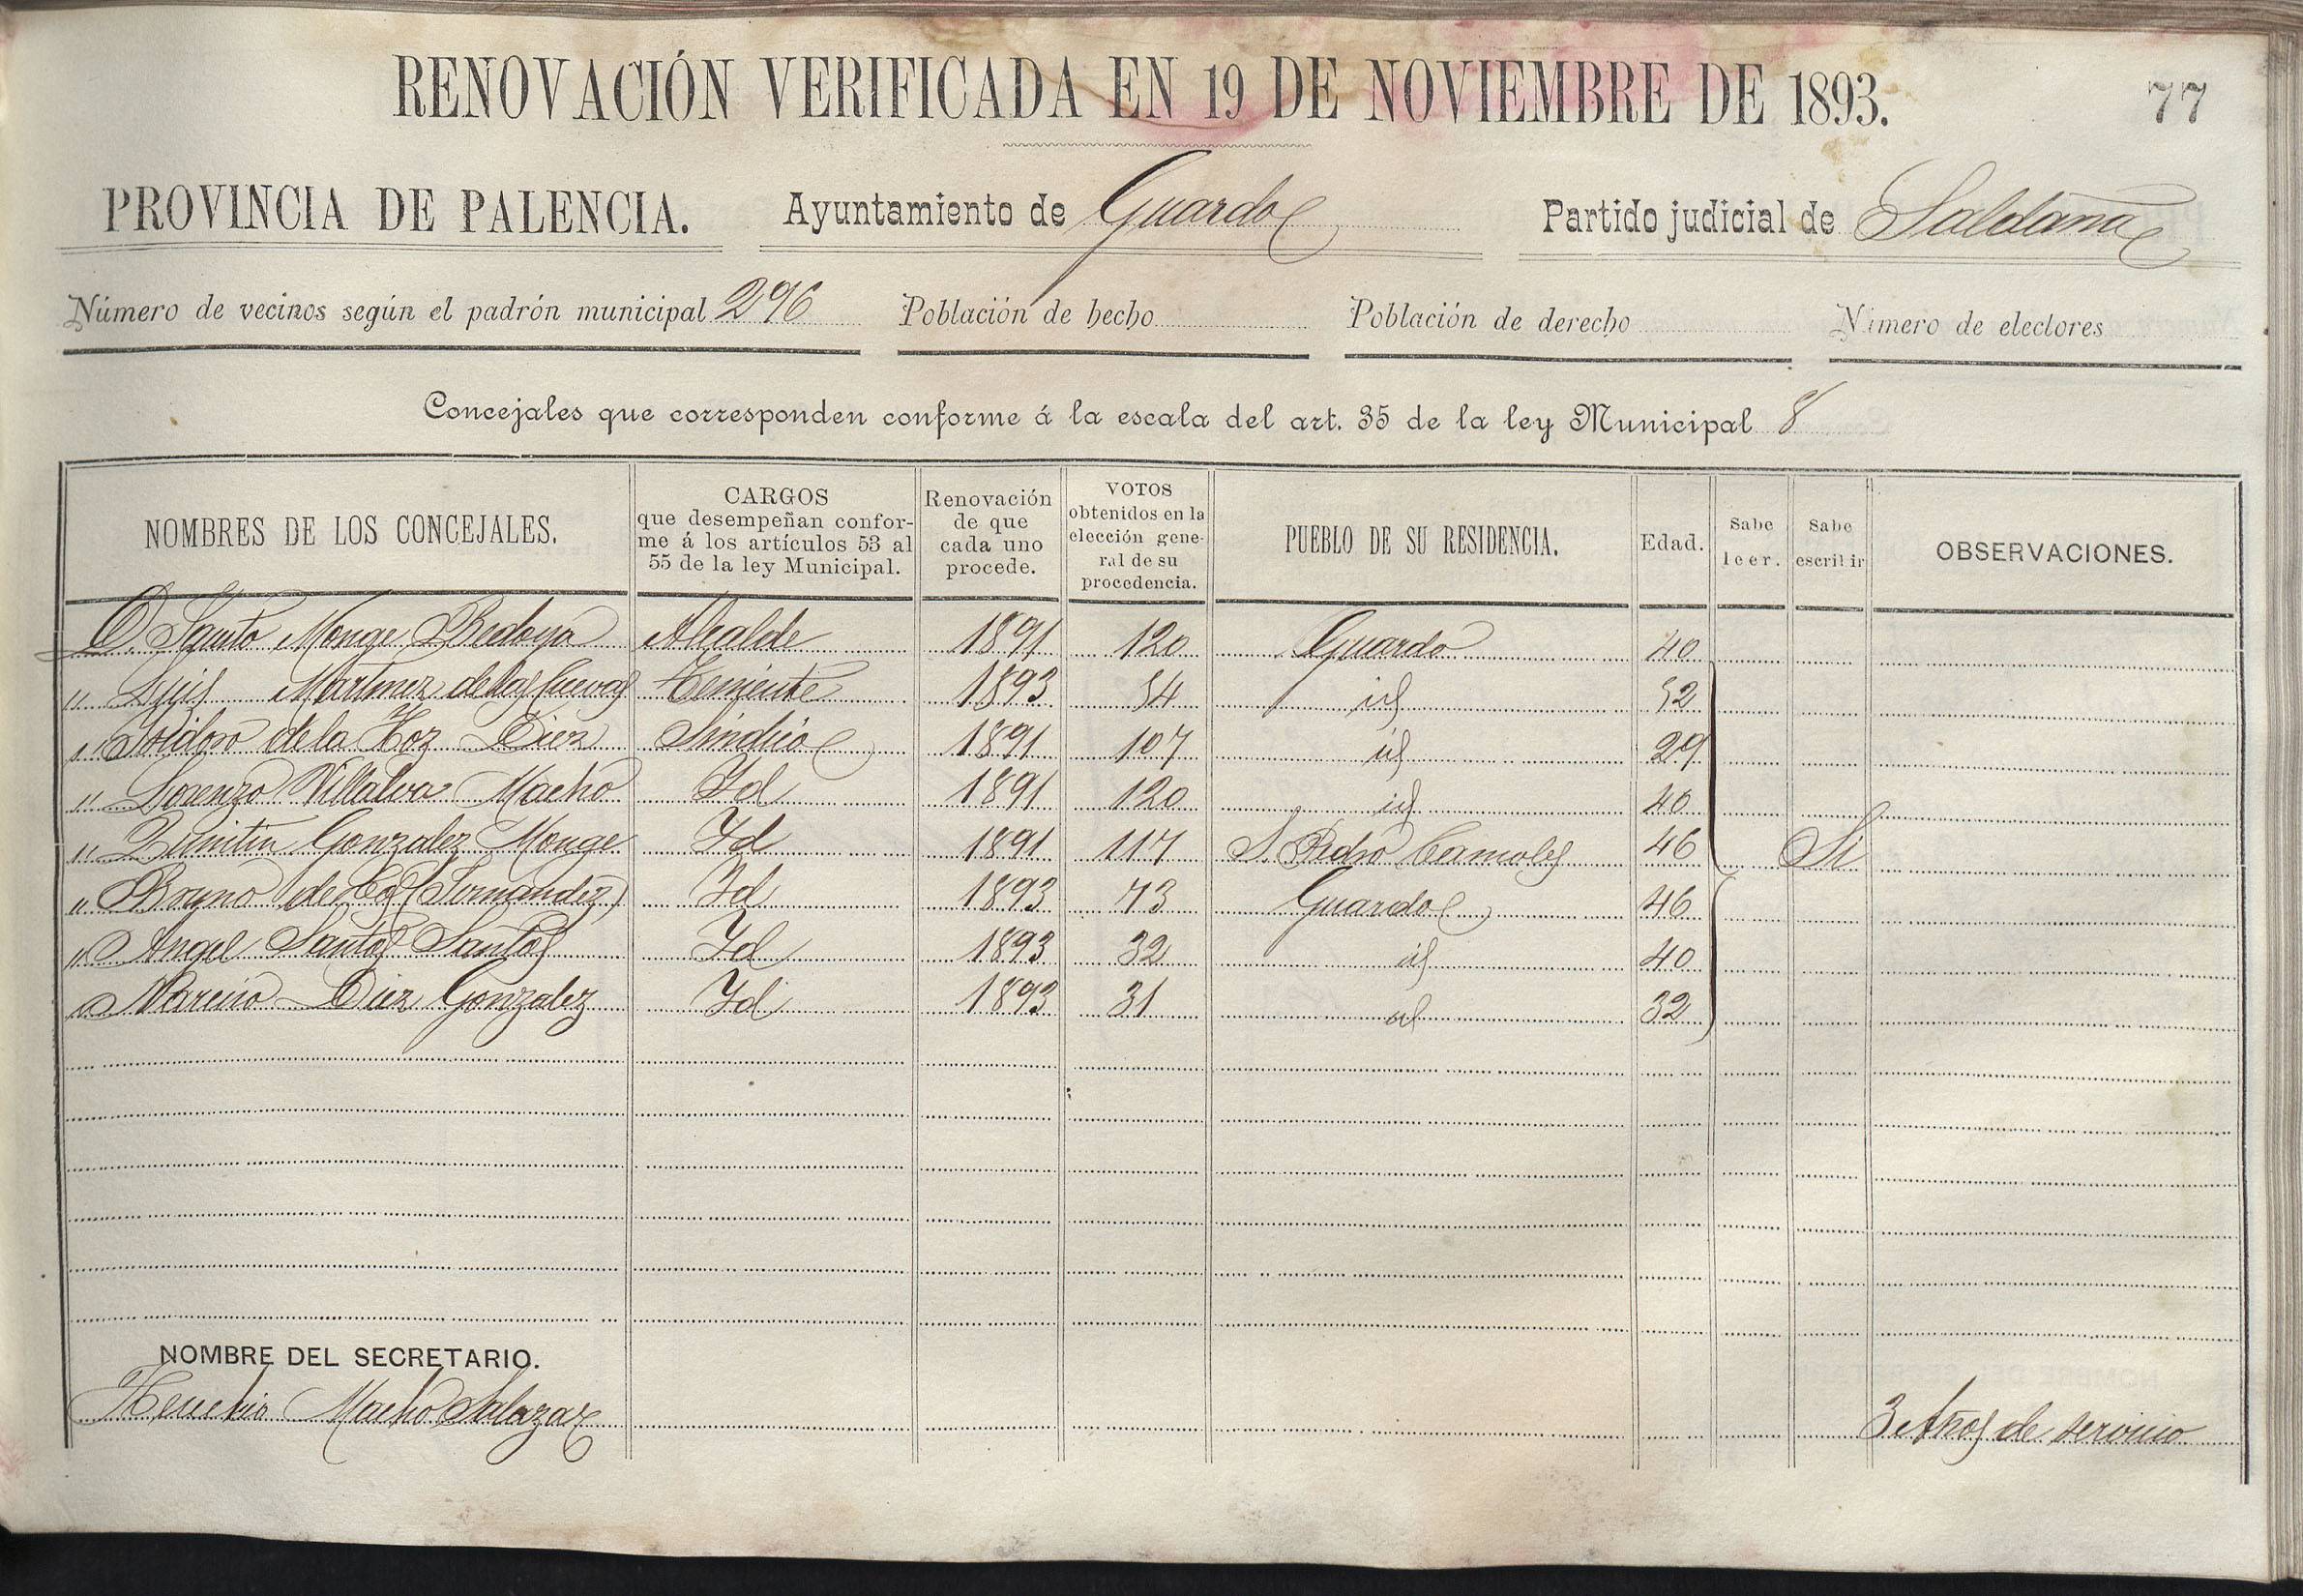 RENOVACIÓN VERIFICADA EN 19 DE NOVIEMBRE DE 1893. 77
PROVINCIA DE PALENCIA. Ayuntamiento de Guardo Partido judicial de Saldaña
Número de vecinos según el padrón municipal 296 Población de hecho Población de derecho Número de electores
Concejales que corresponden conforme á la escala del art. 35 de la ley Municipal 8
NOMBRES DE LOS CONCEJALES. CARGOS que desempeñan conforme á los artículos 53 al 55 de la ley Municipal. Renovación de que cada uno procede. VOTOS obtenidos en la elección general de su procedencia. PUEBLO DE SU RESIDENCIA. Edad. Sabe leer. Sabe escribir OBSERVACIONES.
D. Santo Monge Bedoya Alcalde 1891 120 Guardo 40
" Luis Martinez de las Cuevas Teniente 1893 54 id 52
" Isidoro de la Hoz Diez Sindico 1891 107 id 29
" Lorenzo Villalva Macho Id 1891 120 id 40
" Quintin Gonzalez Monge Id 1891 117 S. Pedro Cansoles 46 Si
" Bruno de Cos Fernandez Id 1893 73 Guardo 46
" Angel Santos Santos Id 1893 32 id 40
" Diez Gonzalez Id 1893 31 id 32
NOMBRE DEL SECRETARIO.
Macho Salazar 3 Años de servicio